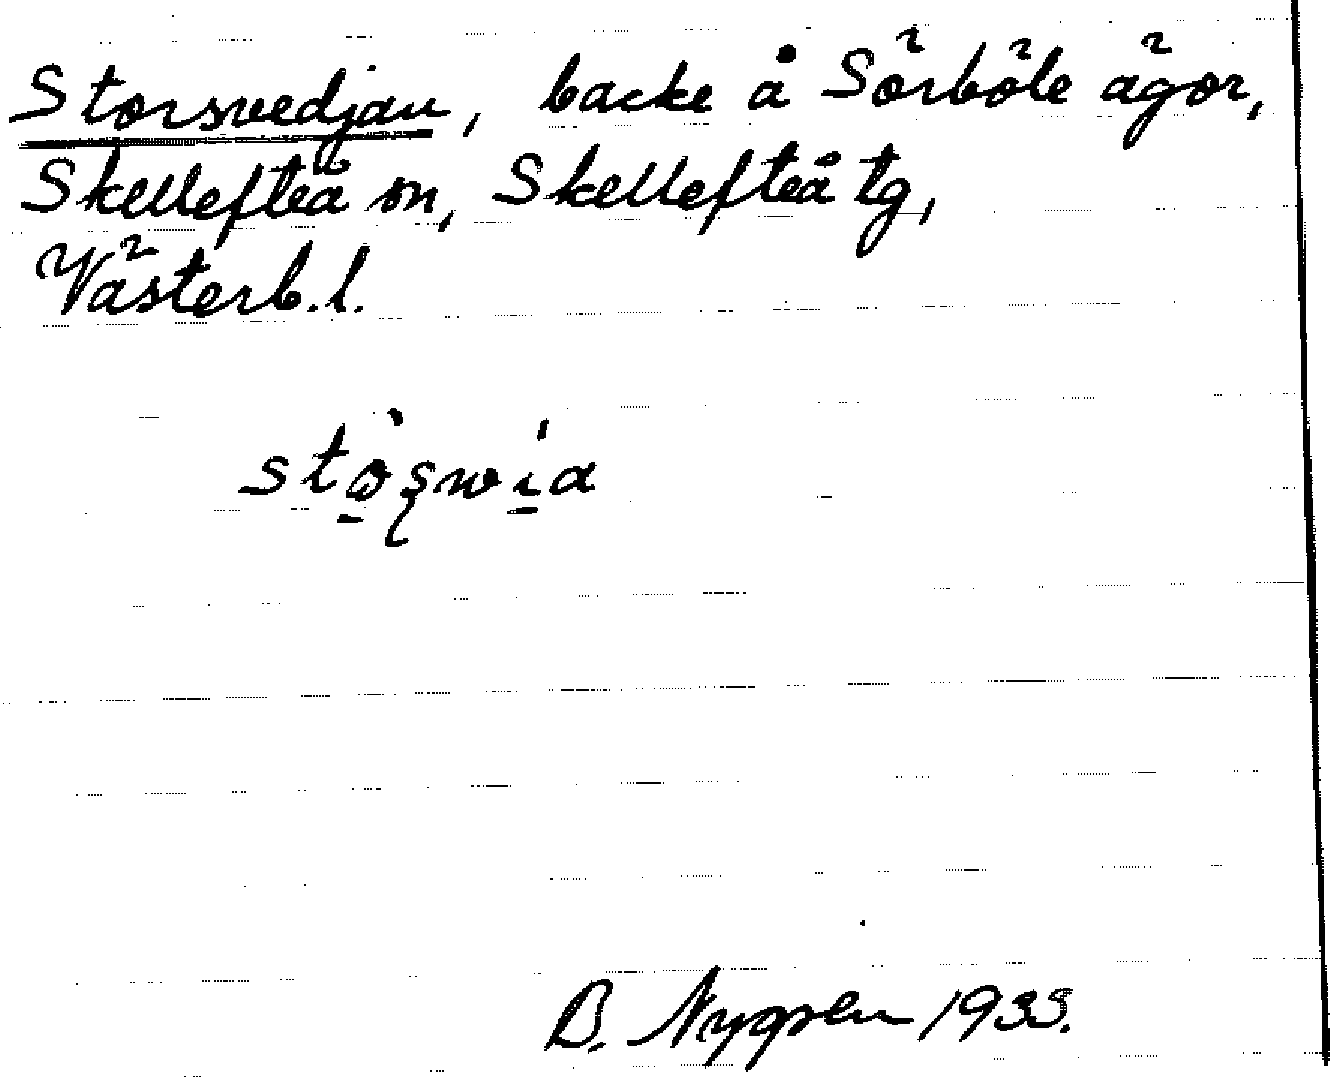 Storsvedjan, backe å Sörböle ägor,
Skellefteå sn, Skellefteå tg,
Västerb. l.
B. Nygren 1933.